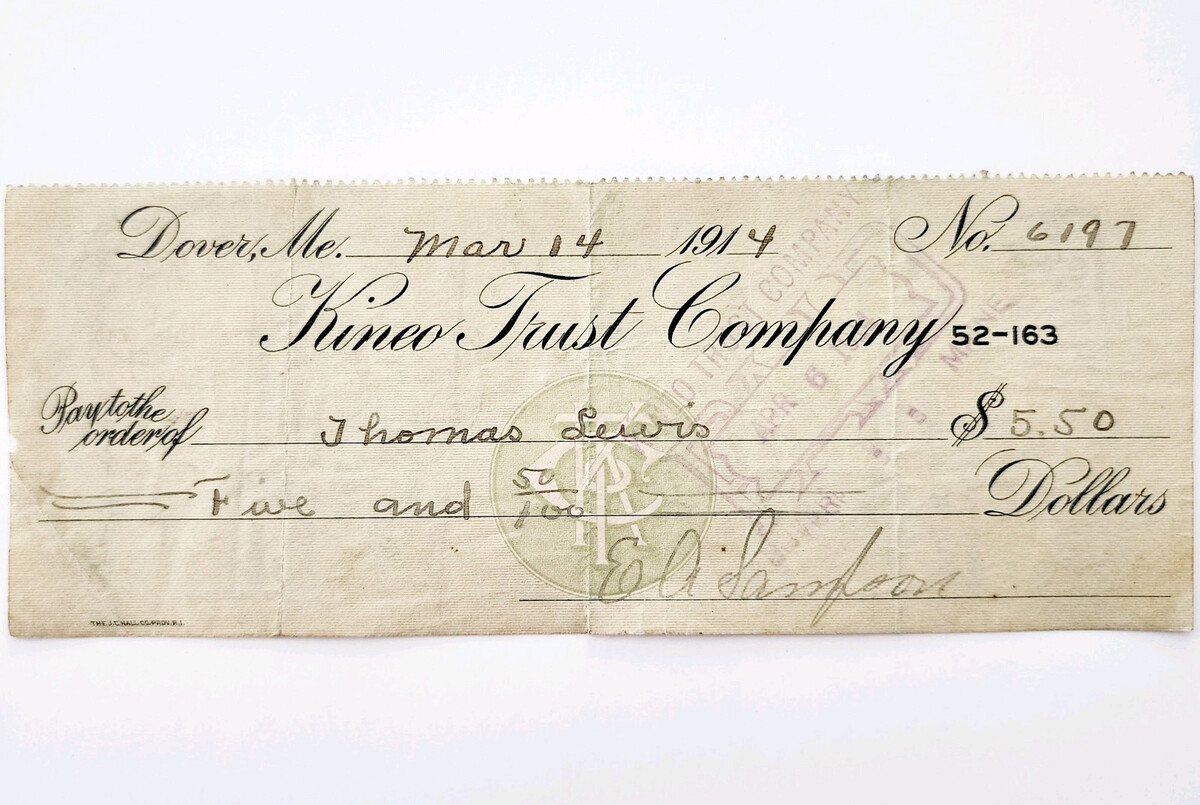 Dover, Me. Mar 14 1914 No. 6197
Kineo Trust Company 52-163
Pay to the order of Thomas Lewis $ 5.50
Five and 50/100 Dollars
E A Sampson
TRUST COMPANY
APR 6
MAINE
THE J.C. HALL CO. PROV. R.I.